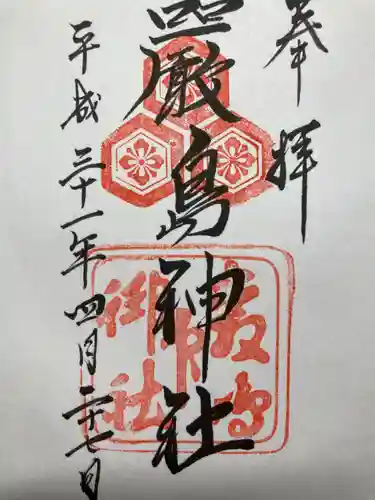 奉拝
嚴島神社
平成三十一年四月二十七日